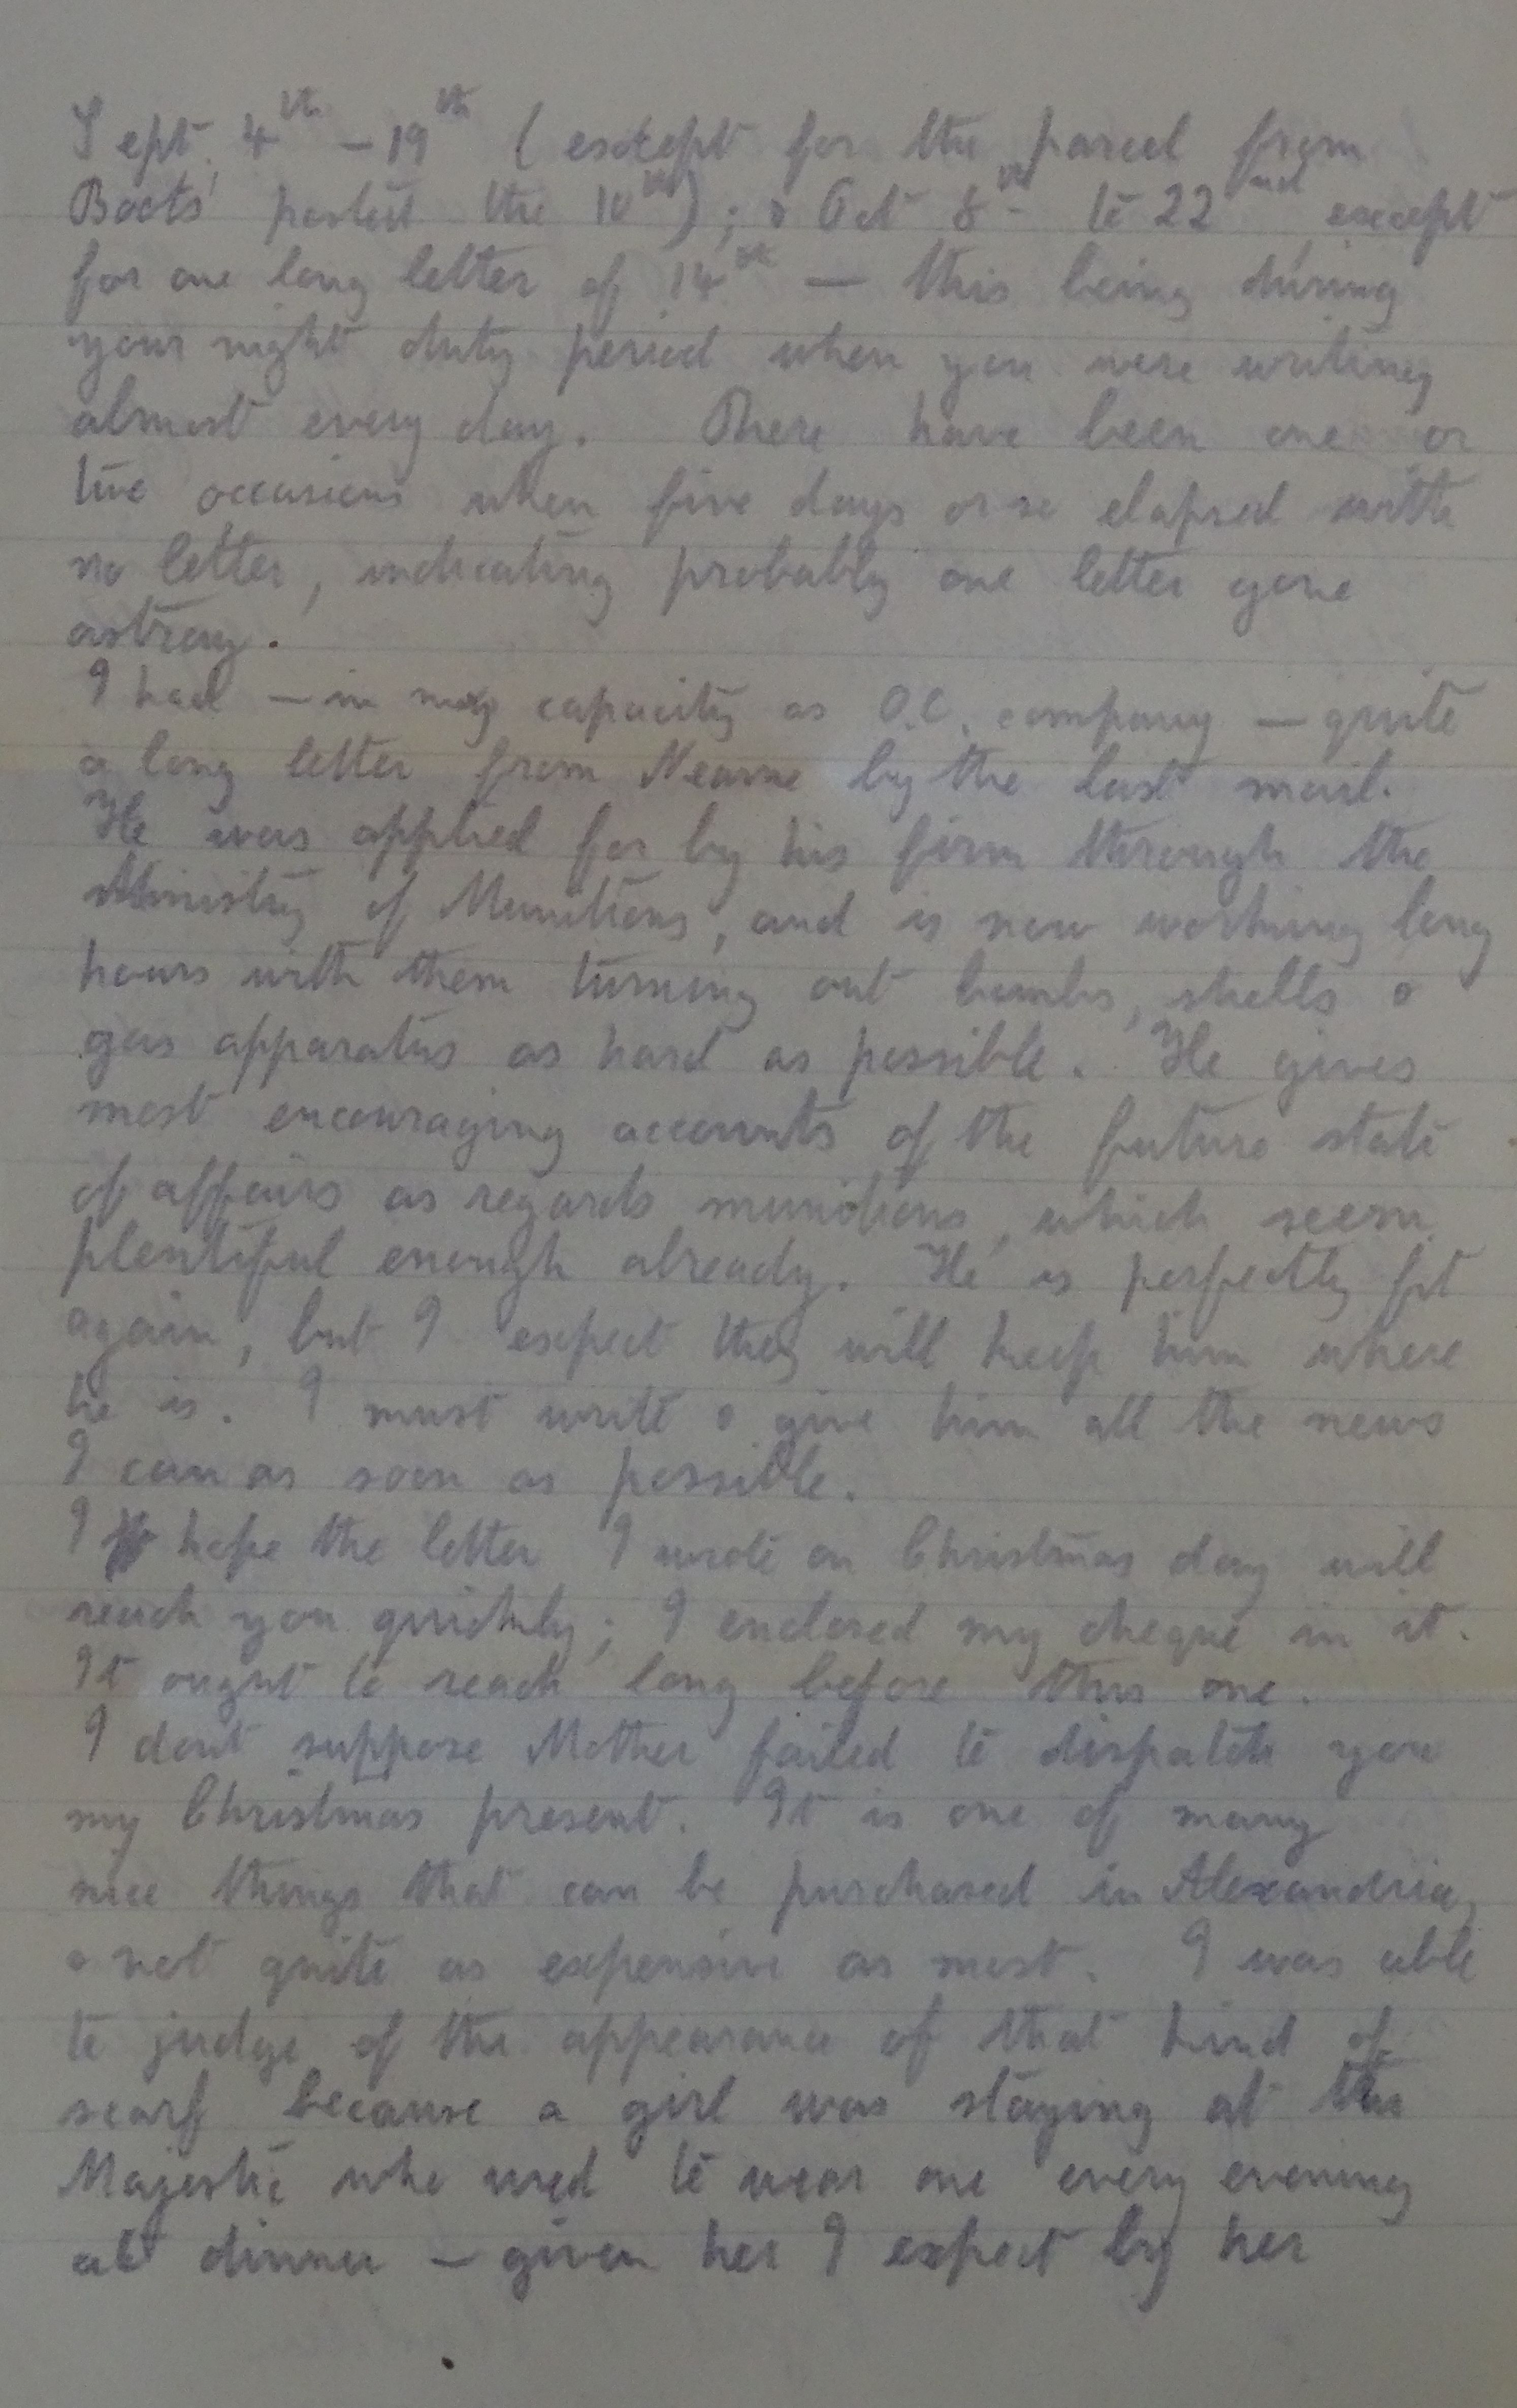 Sept. 4th – 19th (except for the parcel from
Boots' posted the 10th); & Oct 8th to 22nd, except
for one long letter of 14th — this being during
your night duty period when you were writing
almost every day. There have been one or
two occasions when five days or so elapsed with
no letter, indicating probably one letter gone
astray.
I had — in my capacity as O.C. company — quite
a long letter from Nearne by the last mail.
He was applied for by his firm through the
Ministry of Munitions, and is now working long
hours with them turning out bombs, shells &
gas apparatus as hard as possible. He gives
most encouraging accounts of the future state
of affairs as regards munitions, which seem
plentiful enough already. He is perfectly fit
again, but I expect they will keep him where
he is. I must write & give him all the news
I can as soon as possible.
I hope the letter I wrote on Christmas day will
reach you quickly; I enclosed my cheque in it.
It ought to reach long before this one.
I dont suppose Mother failed to dispatch you
my Christmas present. It is one of many
nice things that can be purchased in Alexandria,
& not quite as expensive as most. I was able
to judge of the appearance of that kind of
scarf because a girl was staying at the
Majestic who used to wear one every evening
at dinner – given her I expect by her